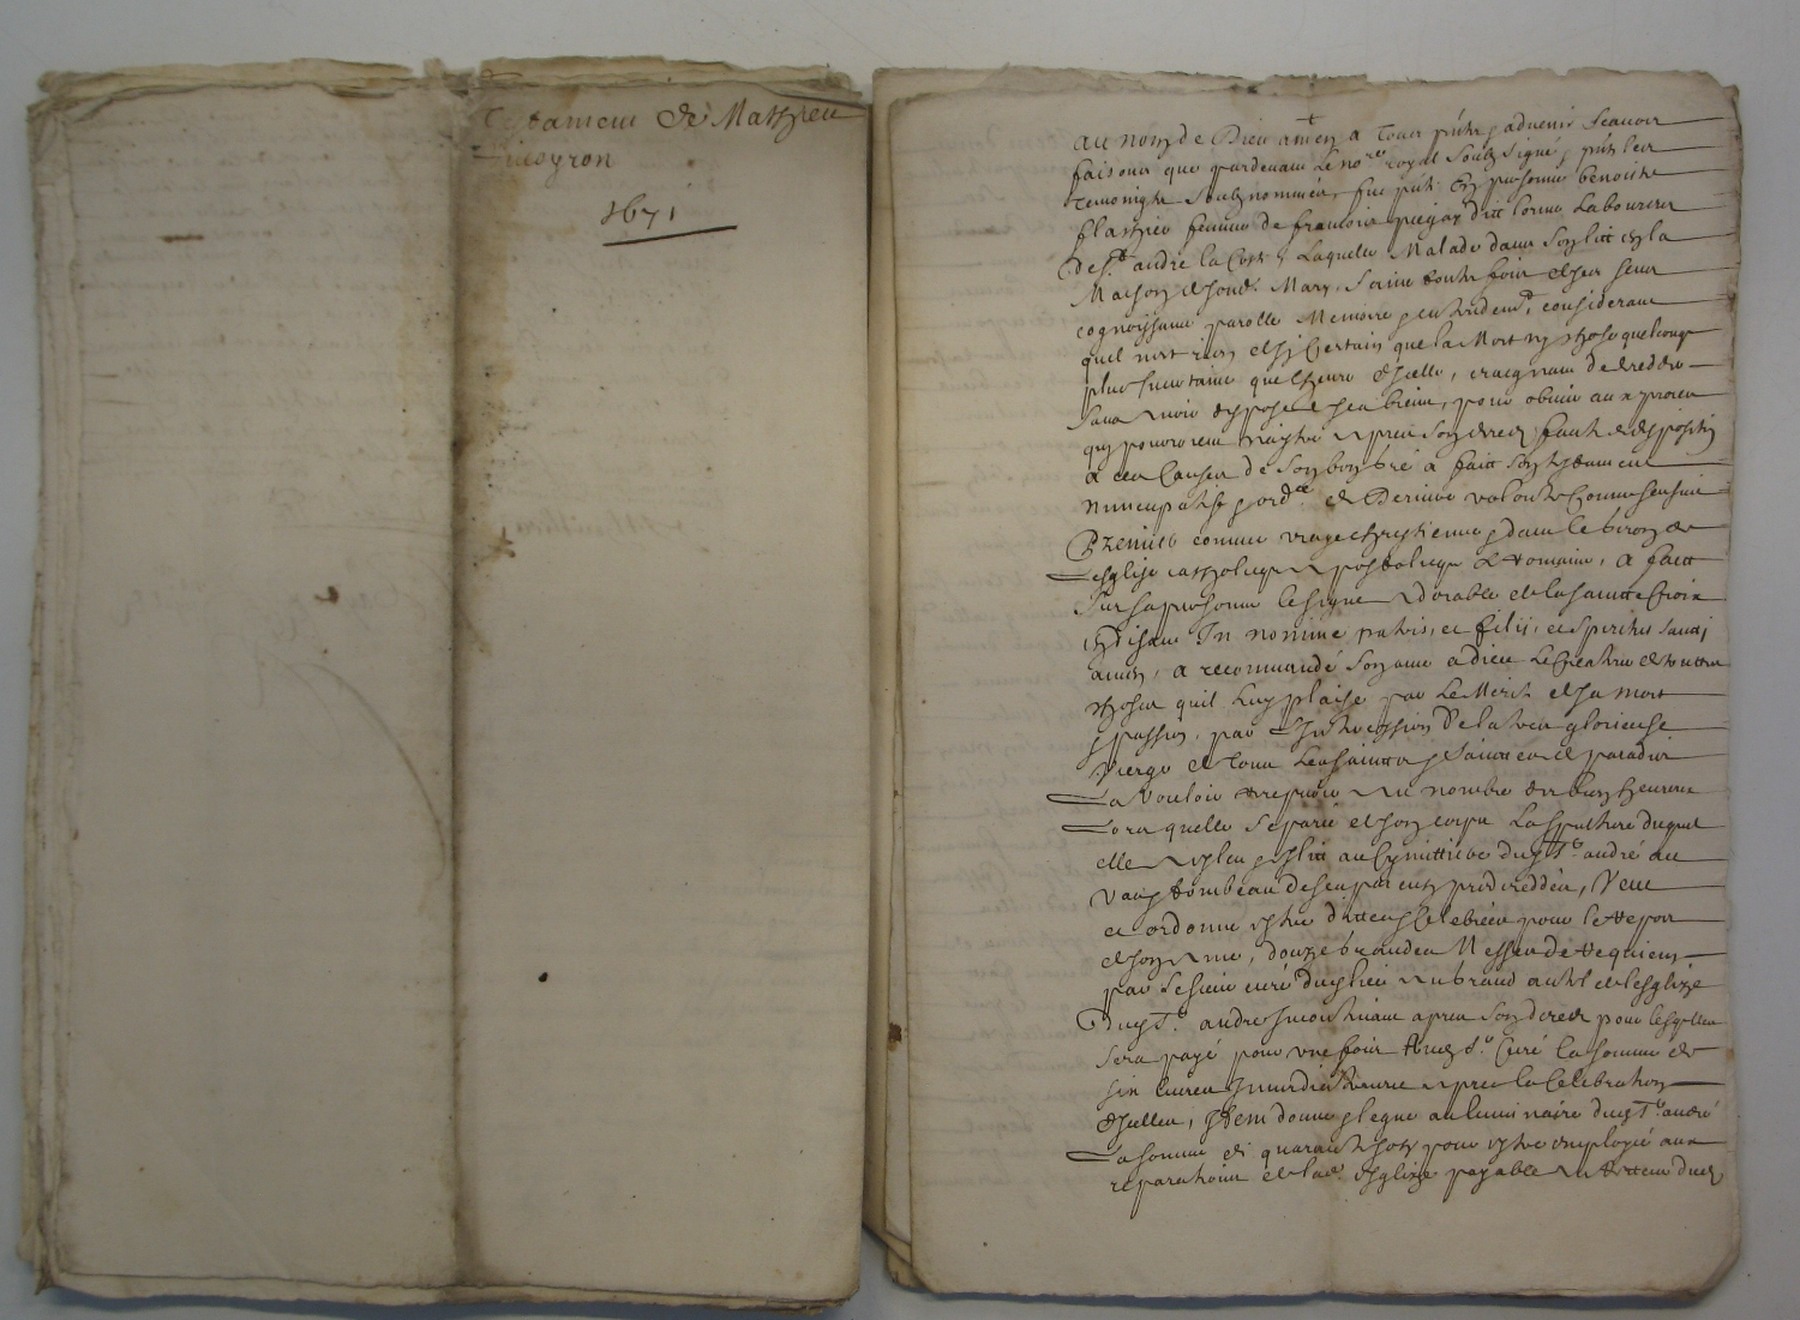 Testament de Mathieu
1671
au nom de Dieu amen a tous pnts et aduenir scauoir
faisons que pardeuant le no.re royal soubz signé, et pnts les
temoingts soubz nommés, fut pnte en personne benoiste
flachier femme de francois ditt Laboureur
de s.t andré la Coste, Laquelle Malade dans son litt en la
Maison de sond. Mary, saine toutte fois de ses sens
cognoissance parolle Memoire et entendem.t, considerant
quil nest rien de sy Certain que la Mort ny chose quelconque
plus incertaine que lheure dicelle, craignant de decedder
sans auoir disposé de ses biens, pour obuier aux proces
quy pourroient naystre apres son deces faute de disposition
a ces Causes de son bon gré a faitt son testament
nuncupatif et ord.ce de Derniere volonté Comme sensuit
Premier comme vraye chrestienne et dans le giron de
Lesglise catholique apostolique et Romaine, a faitt
sur sa personne le signe adorable de la sainctte Croix
En disant In nomine patris, et filii, et spiritus sancti
amen, a recommandé son ame a dieu Le Createur de touttes
choses quil luy plaise par Le Merite de sa mort
et passion, par Lintercession de la tres glorieuse
Vierge et tous Les saintts et saintes de paradis
La vouloir receuoir au nombre des bienheureux
Lors quelle separée de son corps La sepulture duquel
elle a esleu et eslit au Cymittiere dud S.t andré au
vas et tombeau de ses parents preddecedés, Veut
et ordonne estre dittes et Celebrées pour le Repos
de son ame, douze grandes Messes de Requiem
par Le sieur curé dud lieu au grand autel de lesglize
dud S.t andré Incontinant apres son deces pour lesquelles
sera payé pour vne fois aud s.r Curé la somme de
six liures Immediatement apres la Celebration
dicelles, Item donne et legue au luminaire dud S.t andré
La somme de quarante sols pour estre employé aux
reparations de lad. esglize payable au Recteur dud